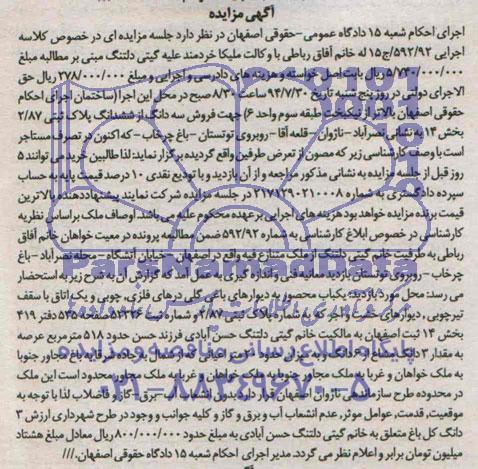 آگهی مزایده
اجرای احکام شعبه ۱۵ دادگاه عمومی -حقوقی اصفهان در نظر دارد جلسه مزایده ای در خصوص کلاسه
اجرایی ۵۹۲/۹۲/ج۱۵ له خانم آفاق رباطی با وکالت ملیکا خردمند علیه گیتی دلتنگ مبنی بر مطالبه مبلغ
۵/۷۳۰/۰۰۰/۰۰۰ ریال بابت اصل خواسته و هزینه های دادرسی و اجرایی و مبلغ ۲۷۸/۰۰۰/۰۰۰ ریال حق
الاجرای دولتی در روز پنج شنبه تاریخ ۹۴/۷/۳۰ ساعت ۸/۳۰ صبح در محل این اجرا (ساختمان اجرای احکام
حقوقی اصفهان بالاتر از نیکبخت طبقه سوم واحد ۶) جهت فروش سه دانگ از ششدانگ پلاک ثبتی ۲/۸۷
بخش ۱۴ به نشانی نصرآباد - ناژوان - قلعه آقا - روبروی توتستان - باغ چرخاب - که اکنون در تصرف مستاجر
است با وصف کارشناسی زیر که مصون از تعرض طرفین واقع گردیده برگزار نماید: لذا طالبین خرید می توانند ۵
روز قبل از جلسه مزایده به نشانی مذکور مراجعه و از آن بازدید و با تودیع نقدی ۱۰ درصد قیمت پایه به حساب
سپرده دادگستری به شماره ۲۱۷۱۲۹۰۲۱۰۰۰۸ در جلسه مزایده شرکت نمایند. پیشنهاددهنده بالاترین
قیمت برنده مزایده خواهد بود هزینه های اجرایی بر عهده محکوم علیه می باشد اوصاف ملک بر اساس نظریه
کارشناسی در خصوص ابلاغ کارشناسی به شماره ۵۹۲/۹۲ ضمن مطالعه پرونده در معیت خواهان خانم آفاق
رباطی به طرفیت خانم گیتی دلتنگ از ملک متنازع فیه واقع در اصفهان - خیابان آتشگاه - محله نصرآباد - باغ
چرخاب - روبروی توتستان بازدید معاینه فنی و اندازه گیری به عمل آمد که گزارش آن به شرح زیر به استحضار
می رسد: محل مورد بازدید: یکباب محصور به دیوارهای باغی گلی درهای فلزی، چوبی و یک اتاق با سقف
تیرچوبی، دیوارهای خشت و آجر که به شماره پلاک ثبتی ۲/۸۷ و شماره ثبت صفحه ۵۳۵ دفتر ۴۱۹
بخش ۱۴ ثبت اصفهان به مالکیت خانم گیتی دلتنگ حسن آبادی فرزند حسن حدود ۵۱۸ مترمربع عرصه
به مقدار ۳ دانگ مشاع از ۶ دانگ و به میزان حدود مترمربع اعیانی شمالا به شرقا به باغ مجاور جنوبا
به ملک خواهان و غربا به ملک مجاور جنوبا به ملک خواهان و غربا به ملک مجاور محدود است این ملک
در محدوده طرح ساماندهی ناژوان اصفهان قرار دارد بدون انشعاب آب - برق - گاز و فاضلاب لذا با توجه به
موقعیت، قدمت، عوامل موثر، عدم انشعاب آب و برق و گاز و کلیه جوانب و وجود در طرح شهرداری ارزش ۳
دانگ کل باغ متعلق به خانم گیتی دلتنگ حسن آبادی به مبلغ حدود ۸۰۰/۰۰۰/۰۰۰ ریال معادل مبلغ هشتاد
میلیون تومان برابر و اعلام نظر می گردد. مدیر اجرای احکام شعبه ۱۵ دادگاه حقوقی اصفهان. ///
پایگاه اطلاع رسانی مناقصه و مزایده
۰۲۱-۸۸۳۴۹۶۷۰-۵